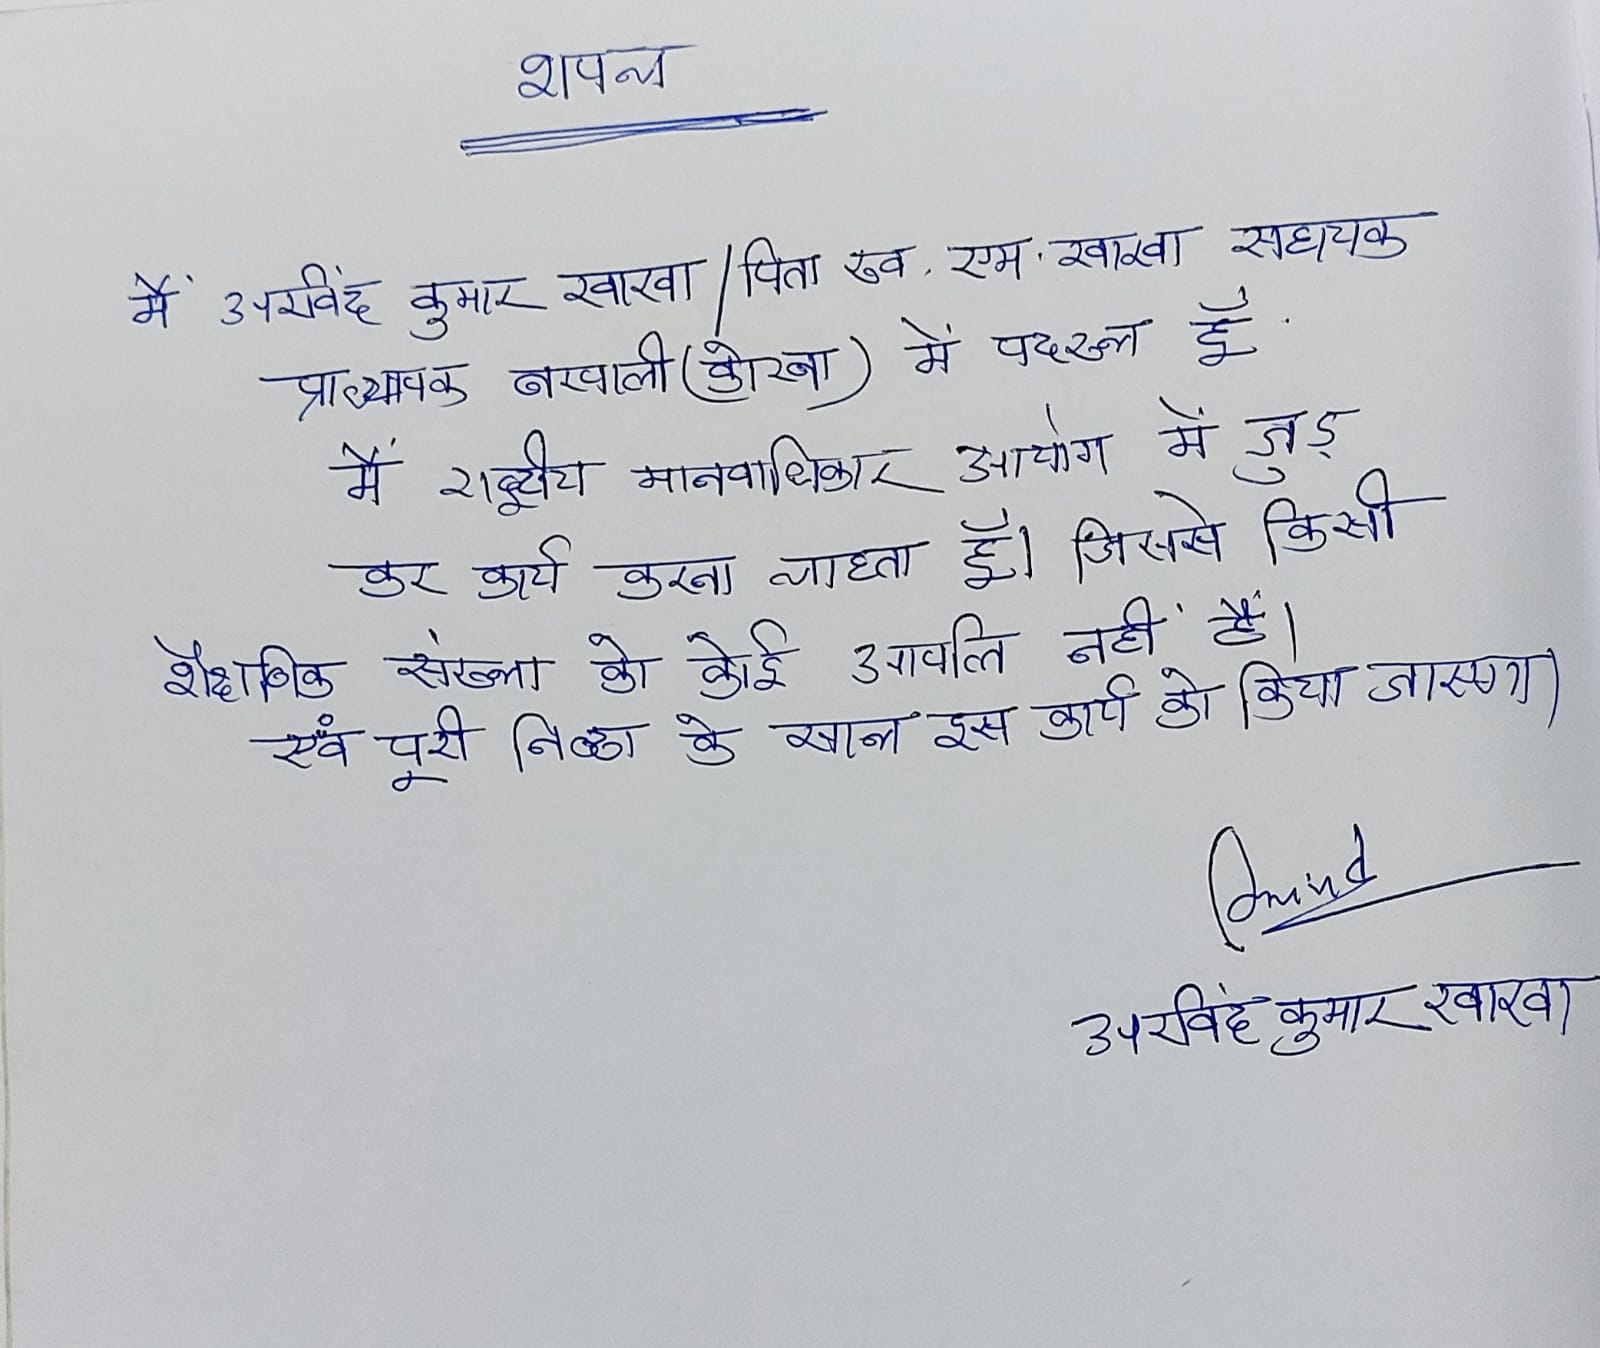 शपथ
मैं अरविंद कुमार खाखा / पिता स्व. एम. खाखा सहायक
प्राध्यापक (कोरबा) में पदस्थ हूँ.
मैं राष्ट्रीय मानवाधिकार आयोग में जुड़
कर कार्य करना चाहता हूँ। जिससे किसी
शैक्षणिक संस्था को कोई आपत्ति नहीं हैं।
एवं पूरी निष्ठा के साथ इस कार्य को किया जाएगा।
Arvind
अरविंद कुमार खाखा